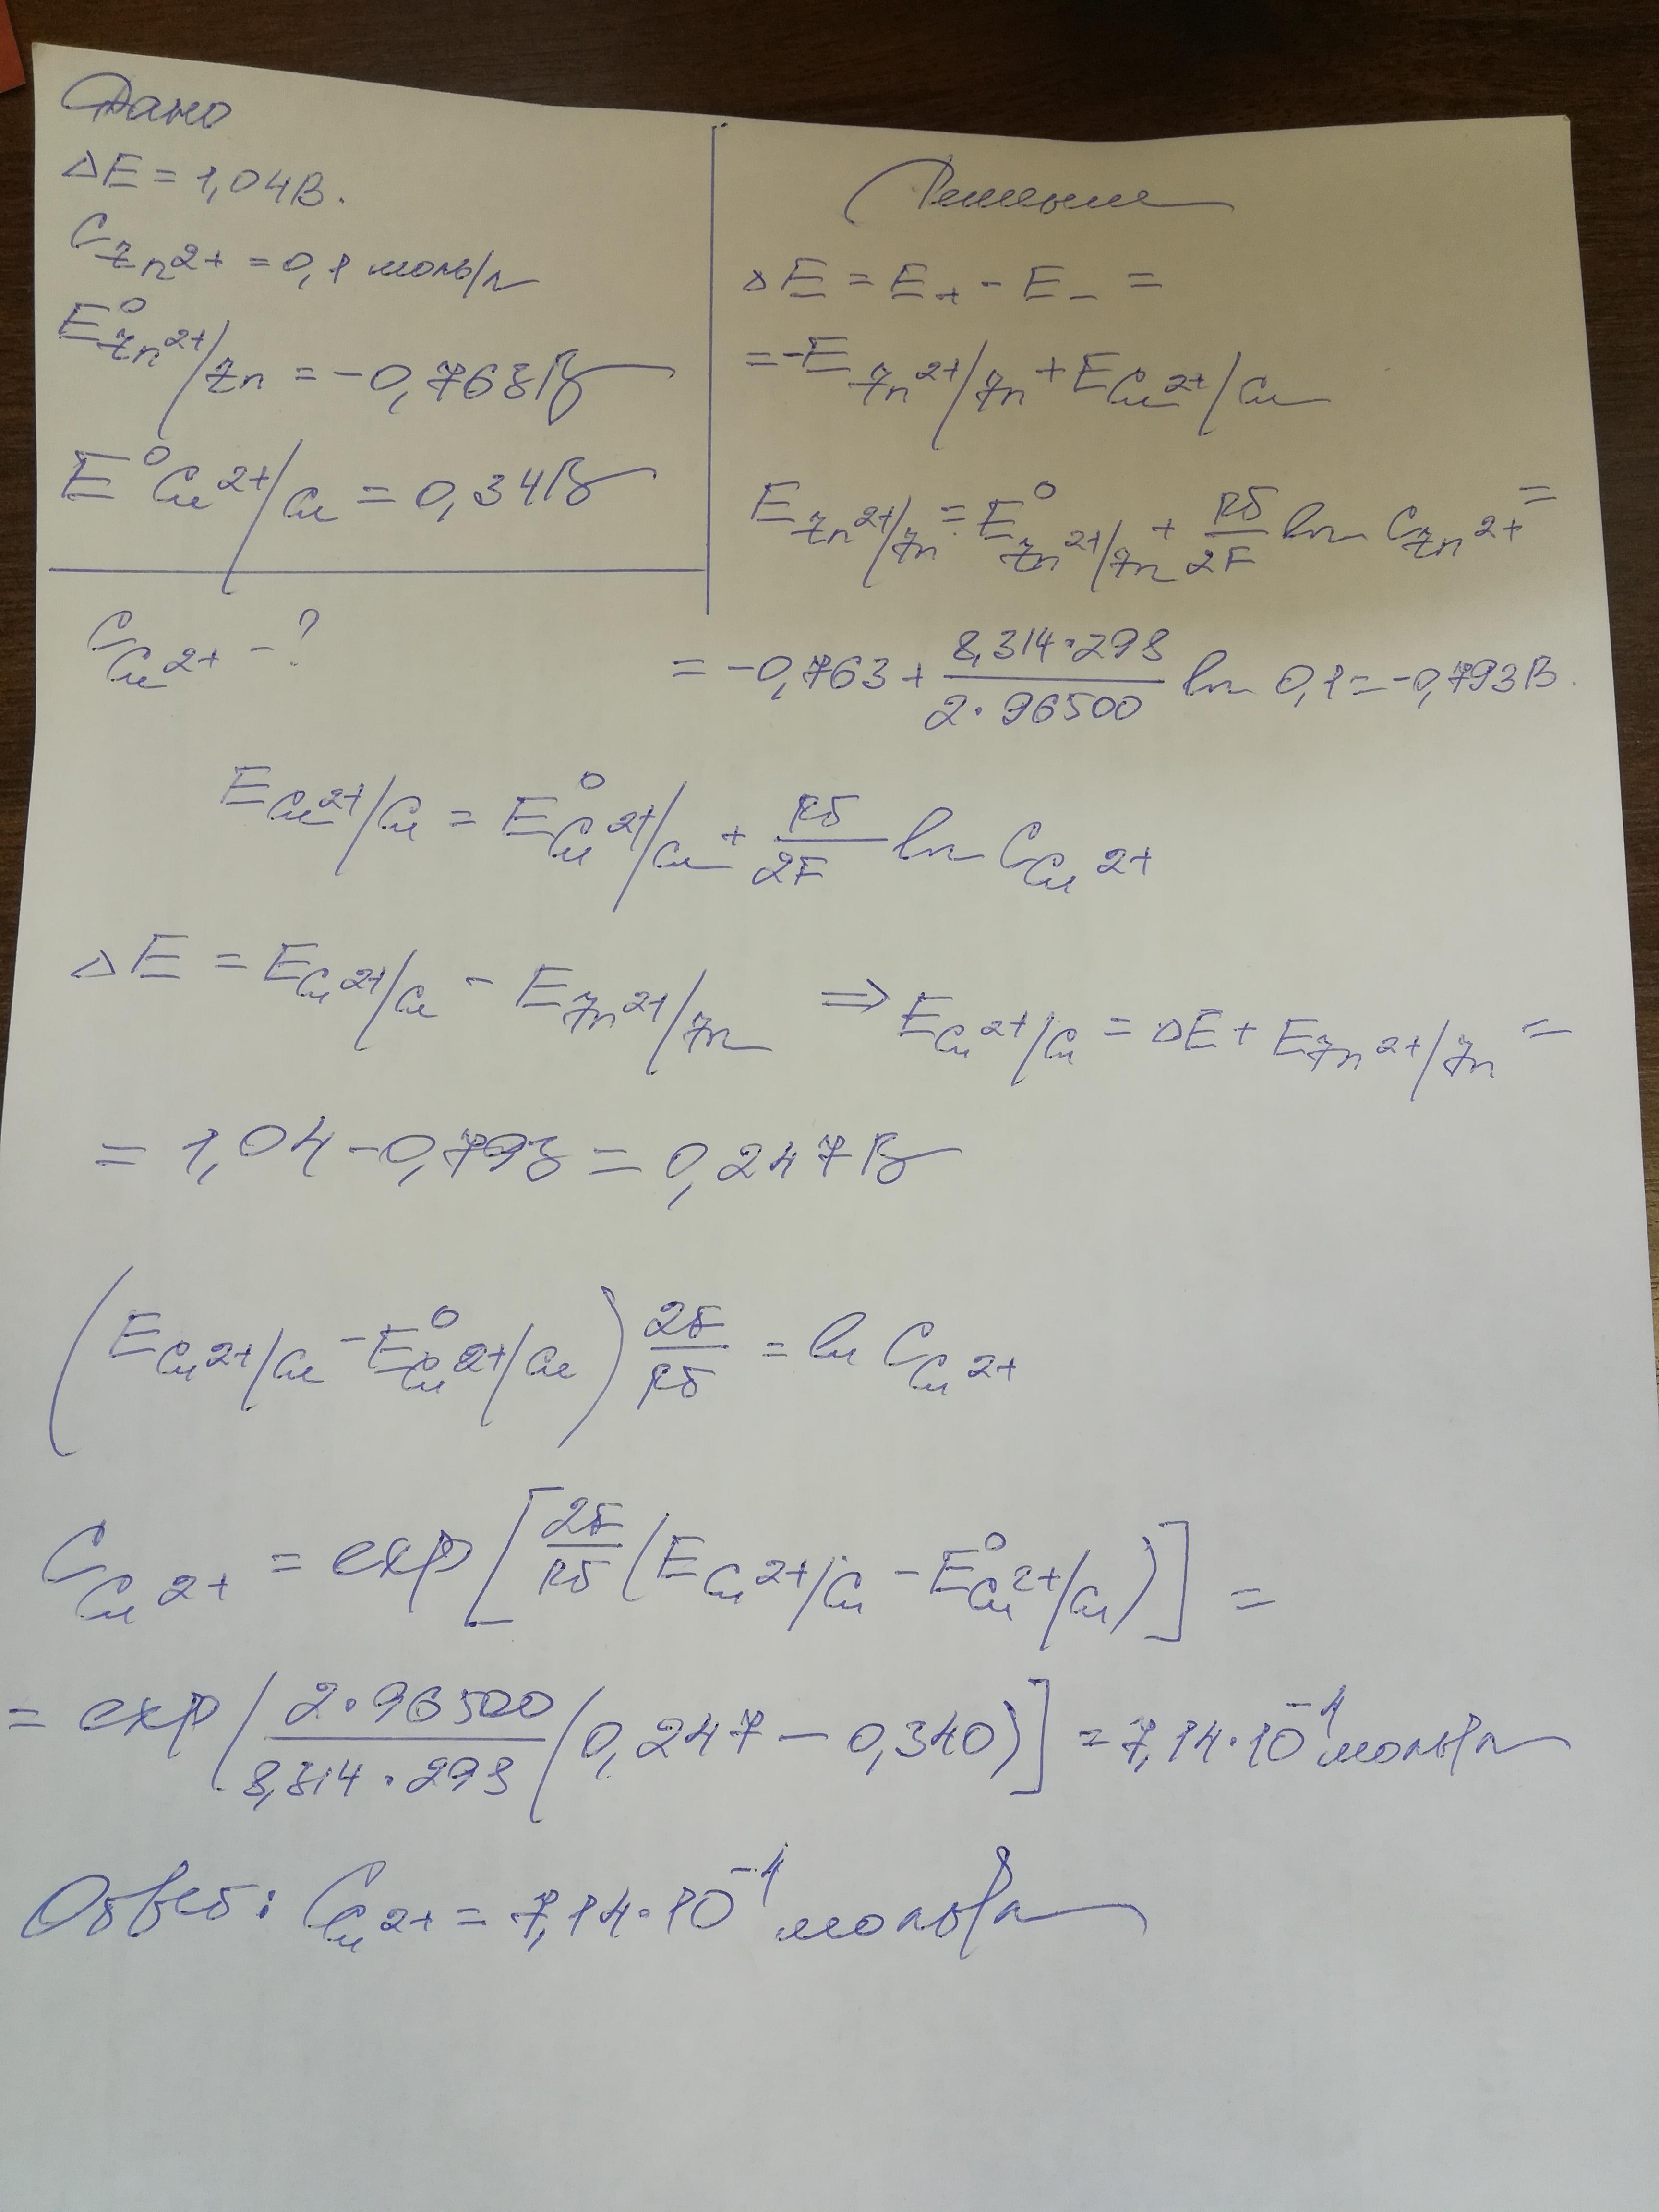 Дано
ΔE = 1,04 В.
C Zn2+ = 0,1 моль/л
E⁰ Zn²⁺/Zn = -0,763 В
E⁰ Cu²⁺/Cu = 0,34 В
C Cu2+ - ?
Решение
ΔE = E₊ - E₋ =
= -E Zn²⁺/Zn + E Cu²⁺/Cu
E Zn²⁺/Zn = E⁰ Zn²⁺/Zn + RT/2F ln C Zn2+ =
= -0,763 + 8,314·298/2·96500 ln 0,1 = -0,793 В.
E Cu²⁺/Cu = E⁰ Cu²⁺/Cu + RT/2F ln C Cu2+
ΔE = E Cu²⁺/Cu - E Zn²⁺/Zn ⇒ E Cu²⁺/Cu = ΔE + E Zn²⁺/Zn =
= 1,04 - 0,793 = 0,247 В
(E Cu2+/Cu - E⁰ Cu2+/Cu) 2F/RT = ln C Cu2+
C Cu2+ = exp [2F/RT (E Cu2+/Cu - E⁰ Cu2+/Cu)] =
= exp (2·96500/8,314·298 (0,247 - 0,340)] = 7,14·10⁻⁴ моль/л
Ответ: C Cu2+ = 7,14·10⁻⁴ моль/л